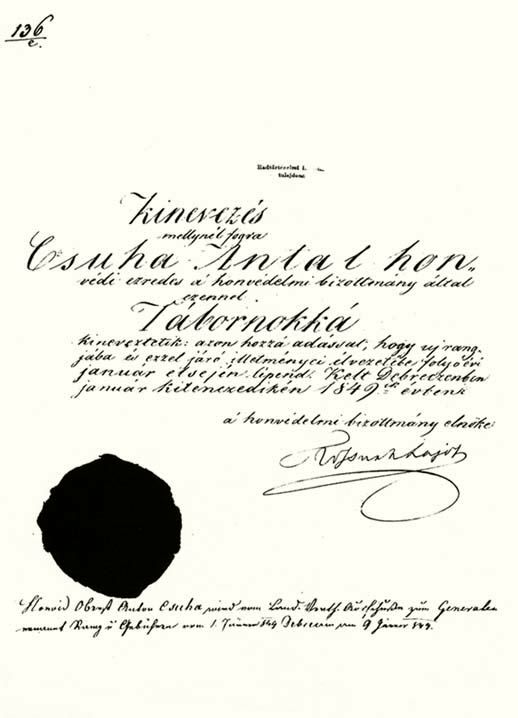 136
e.
Hadtörténelmi l.
tulajdona
Kinevezés
mellynél fogva
Csuha Antal hon„
védi ezredes a honvédelmi bizottmány által
ezennel
Tábornokká
kineveztetik: azon hozzá adással, hogy uj rang„
jába és ezzel járó illetményei élvezetébe folyó évi
január elsején lépend. Kelt Debreczenben
január kilenczedikén 1849ik évben
a honvédelmi bizottmány elnöke
Kossuth Lajos
Honvéd Obrist Anton Csuha wird vom Land. Verth. Ausschuße zum Generalen
ernannt Rang u Gebühren vom 1. Jänner 849 Debreczin am 9 Jänner 849.